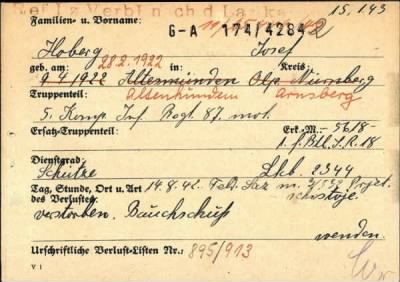 15.143
Familien- u. Vorname
G-A 174/4284
Hoberg Josef
geb. am: 28.2.1922 in: Kreis:
9.4.1922 Altermünden Olp Nürnberg
Truppenteil: Altenhundem Arnsberg
5. Komp. Inf. Regt. 87. mot.
Ersatz-Truppenteil: Erk.-M. -5618-
1. f. Btl. I.R. 18
Dienstgrad:
Schütze Lkb. 2344
Tag, Stunde, Ort u. Art 14.8.42. Feld Laz m.
des Verlustes:
verstorben. Bauchschuß
wenden.
Urschriftliche Verlust-Listen Nr.: 895/913
V 1